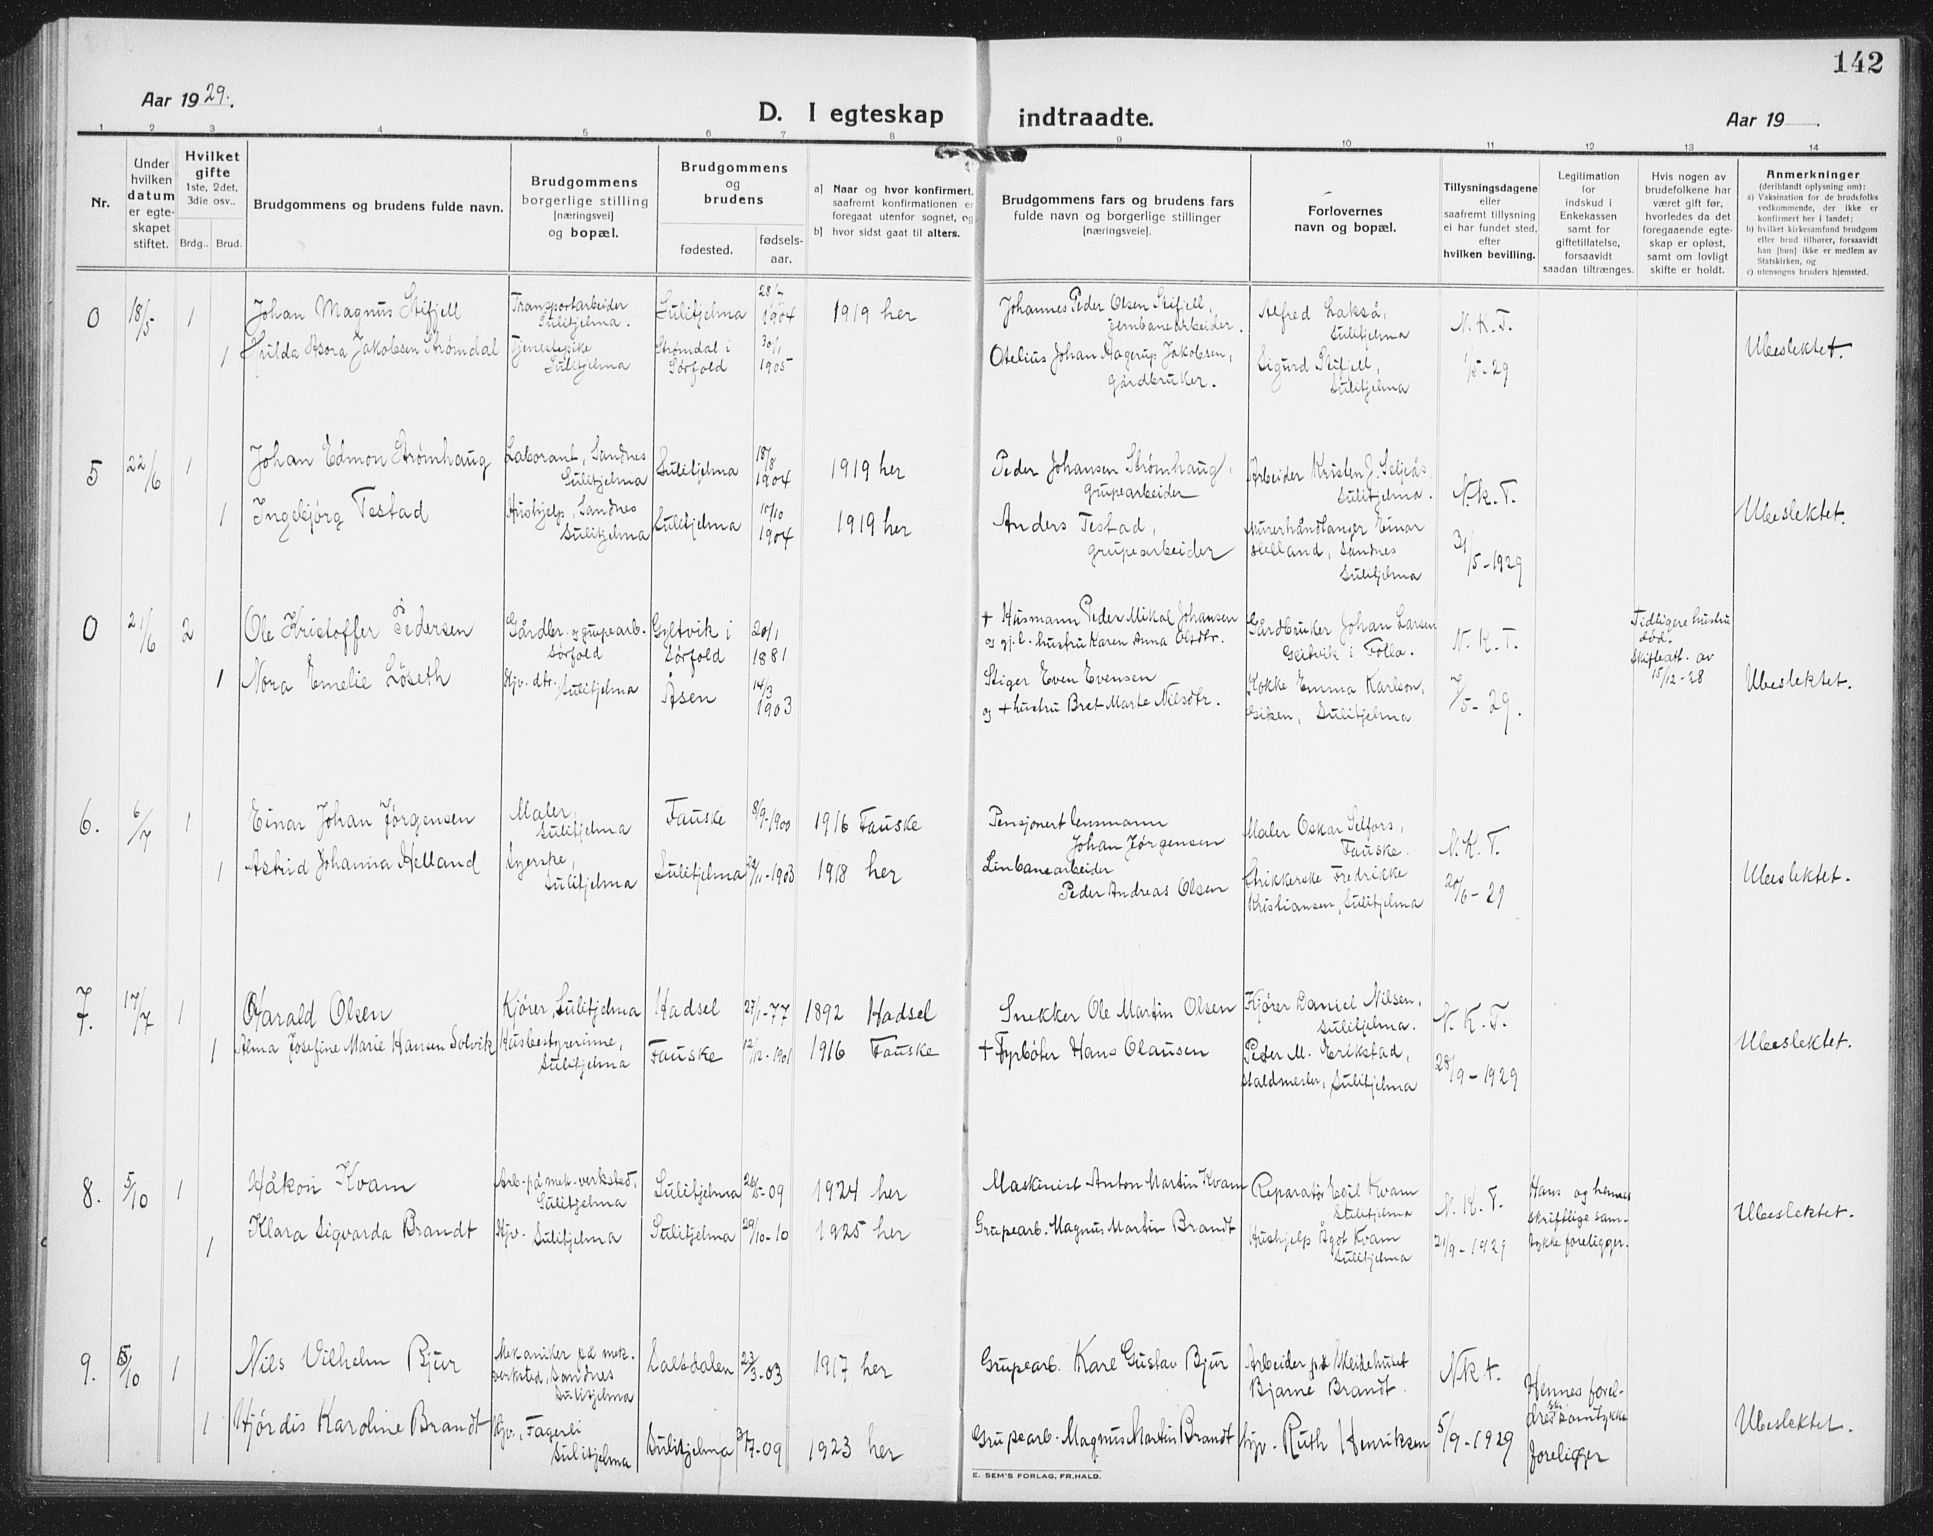 142
Aar 1929.
D. I egteskap indtraadte.
Aar 19
1 2 3 4 5 6 7 8 9 10 11 12 13 14
Nr.
Under hvilken datum er egte-skapet stiftet.
Hvilket gifte 1ste, 2det, 3die osv..
Brdg.. Brud.
Brudgommens og brudens fulde navn.
Brudgommens borgerlige stilling [næringsvei] og bopæl.
Brudgommens og brudens
fødested.
fødsels-aar.
a] Naar og hvor konfirmert, saafremt konfirmationen er foregaat utenfor sognet, og
b] hvor sidst gaat til alters.
Brudgommens fars og brudens fars fulde navn og borgerlige stillinger [næringsveie].
Forlovernes navn og bopæl.
Tillysningsdagene eller saafremt tillysning ei har fundet sted, efter hvilken bevilling.
Legitimation for indskud i Enkekassen samt for giftetillatelse, forsaavidt saadan tiltrænges.
Hvis nogen av brudefolkene har været gift før, hvorledes da det foregaaende egte-skap er opløst, samt om lovligt skifte er holdt.
Anmerkninger (deriblandt oplysning om):
a) Vaksination for de brudefolks vedkommende, der ikke er konfirmert her i landet;
b) hvilket kirkesamfund brudgom eller brud tilhører, forsaavidt han [hun] ikke er medlem av Statskirken, og
c) utensogns bruders hjemsted.
0 18/5 1 Johan Magnus Stifjell Transportarbeider Sulitjelma. Sulitjelma 1904 1919 her Johannes Peder Olsen Stifjell, jernbanearbeider. Alfred Lakså, Sulitjelma N.K.T.
1 Hulda Asora Jakobsen Strømdal Tjenestepike Sulitjelma Strømdal i Sørfold 30/1 1905 Otelius Johan Hagerup Jakobsen, gårdbruker. Sigurd Stifjell, Sulitjelma 1/5-29 Ubeslektet.
5 22/6 1 Johan Edmon Strømhaug Laborant, Sandnes Sulitjelma Sulitjelma 18/8 1904 1919 her Peder Johansen Strømhaug, grupearbeider Arbeider Kristen J. Seljeås, Sulitjelma. N.K.T.
1 Ingebjørg Testad Hushjelp, Sandnes Sulitjelma Sulitjelma 10/10 1904 1919 her Anders Testad, grupearbeider Murerhåndlanger Einar Helland, Sandnes Sulitjelma 31/5-1929 Ubeslektet.
0 21/6 2 Ole Kristoffer Pedersen Gårdbr. og grupearb. Sørfold Gyltvik i Sørfold 20/1 1881 + Husmann Peder Mikal Johansen og gj.l. hustru Karen Anna Olsdtr. Gårdbruker Johan Larsen Geitvik i Folla. N.K.T. Tidligere hustru død. Skifteatt. av 15/12-28
1 Nora Emelie Løseth Hjv. dtr. Sulitjelma Åsen 14/3 1903 Stiger Even Evensen og + hustru Bret Marte Nilsdtr. Kokke Emma Karlson, Giken, Sulitjelma 7/5-29. Ubeslektet.
6. 6/7 1 Einar Johan Jørgensen Maler, Sulitjelma Fauske 8/9-1900 1916 Fauske Pensjonert lensmann Johan Jørgensen Maler Oskar Selfors, Fauske. N.K.T.
1 Astrid Johanna Helland Syerske, Sulitjelma Sulitjelma /11-1903 1918 her Linbanearbeider Peder Andreas Olsen Strikkerske Fredrikke Kristiansen, Sulitjelma 20/6-29 Ubeslektet.
7. 17/7 1 Harald Olsen Kjører, Sulitjelma Hadsel 27/1-77 1892 Hadsel Snekker Ole Martin Olsen Kjører Daniel Nilsen, Sulitjelma. N.K.T.
1 Alma Josefine Marie Hansen Solvik Husbestyrerinne, Sulitjelma Fauske 12/12-1901 1916 Fauske + Fyrbøter Hans Olausen Peder M. Erikstad, Staldmester, Sulitjelma 28/9-1929 Ubeslektet.
8. 5/10 1 Håkon Kvam Arb. på mek. verksted, Sulitjelma Sulitjelma 26/5-09 1924 her Maskinist Anton Martin Kvam Reparatør Emil Kvam Sulitjelma N.K.T. Hans og hennes skriftlige sam-tykke foreligger.
1 Klara Sigvarda Brandt Hjv. Sulitjelma Sulitjelma 29/10-10 1925 her Grupearb. Magnus Martin Brandt Hushjelp Ågot Kvam Sulitjelma 21/9-1929 Ubeslektet.
9. 5/10 1 Nils Vilhelm Bjur Mekaniker på mek. verksted, Sandnes Sulitjelma Saltdalen 23/3-03 1917 her Grupearb. Karl Gustav Bjur Arbeider på Skeidehuset Bjarne Brandt. N.K.t. Hennes forel-dres skr. samtykke foreligger
1 Hjørdis Karoline Brandt Hjv., Fagerli Sulitjelma Sulitjelma /7-09 1923 her Grupearb. Magnus Martin Brandt hjv. Ruth Henriksen 5/9-1929 Ubeslektet.
E. SEM'S FORLAG, FR.HALD.